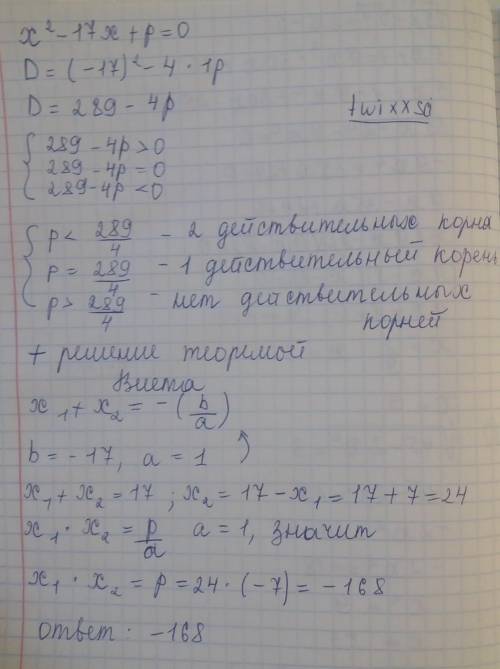 x² - 17x + p = 0
D = (-17)² - 4 · 1p
D = 289 - 4p
twixxsö
289 - 4p > 0
289 - 4p = 0
289 - 4p < 0
p < 289/4 - 2 действительных корна
p = 289/4 - 1 действительный корень
p > 289/4 - нет действительных
корней
+ решение теоремой
Виета
x₁ + x₂ = - (b/a)
b = -17, a = 1
x₁ + x₂ = 17 ; x₂ = 17 - x₁ = 17 + 7 = 24
x₁ · x₂ = p/a a = 1, значит
x₁ · x₂ = p = 24 · (-7) = -168
ответ: -168